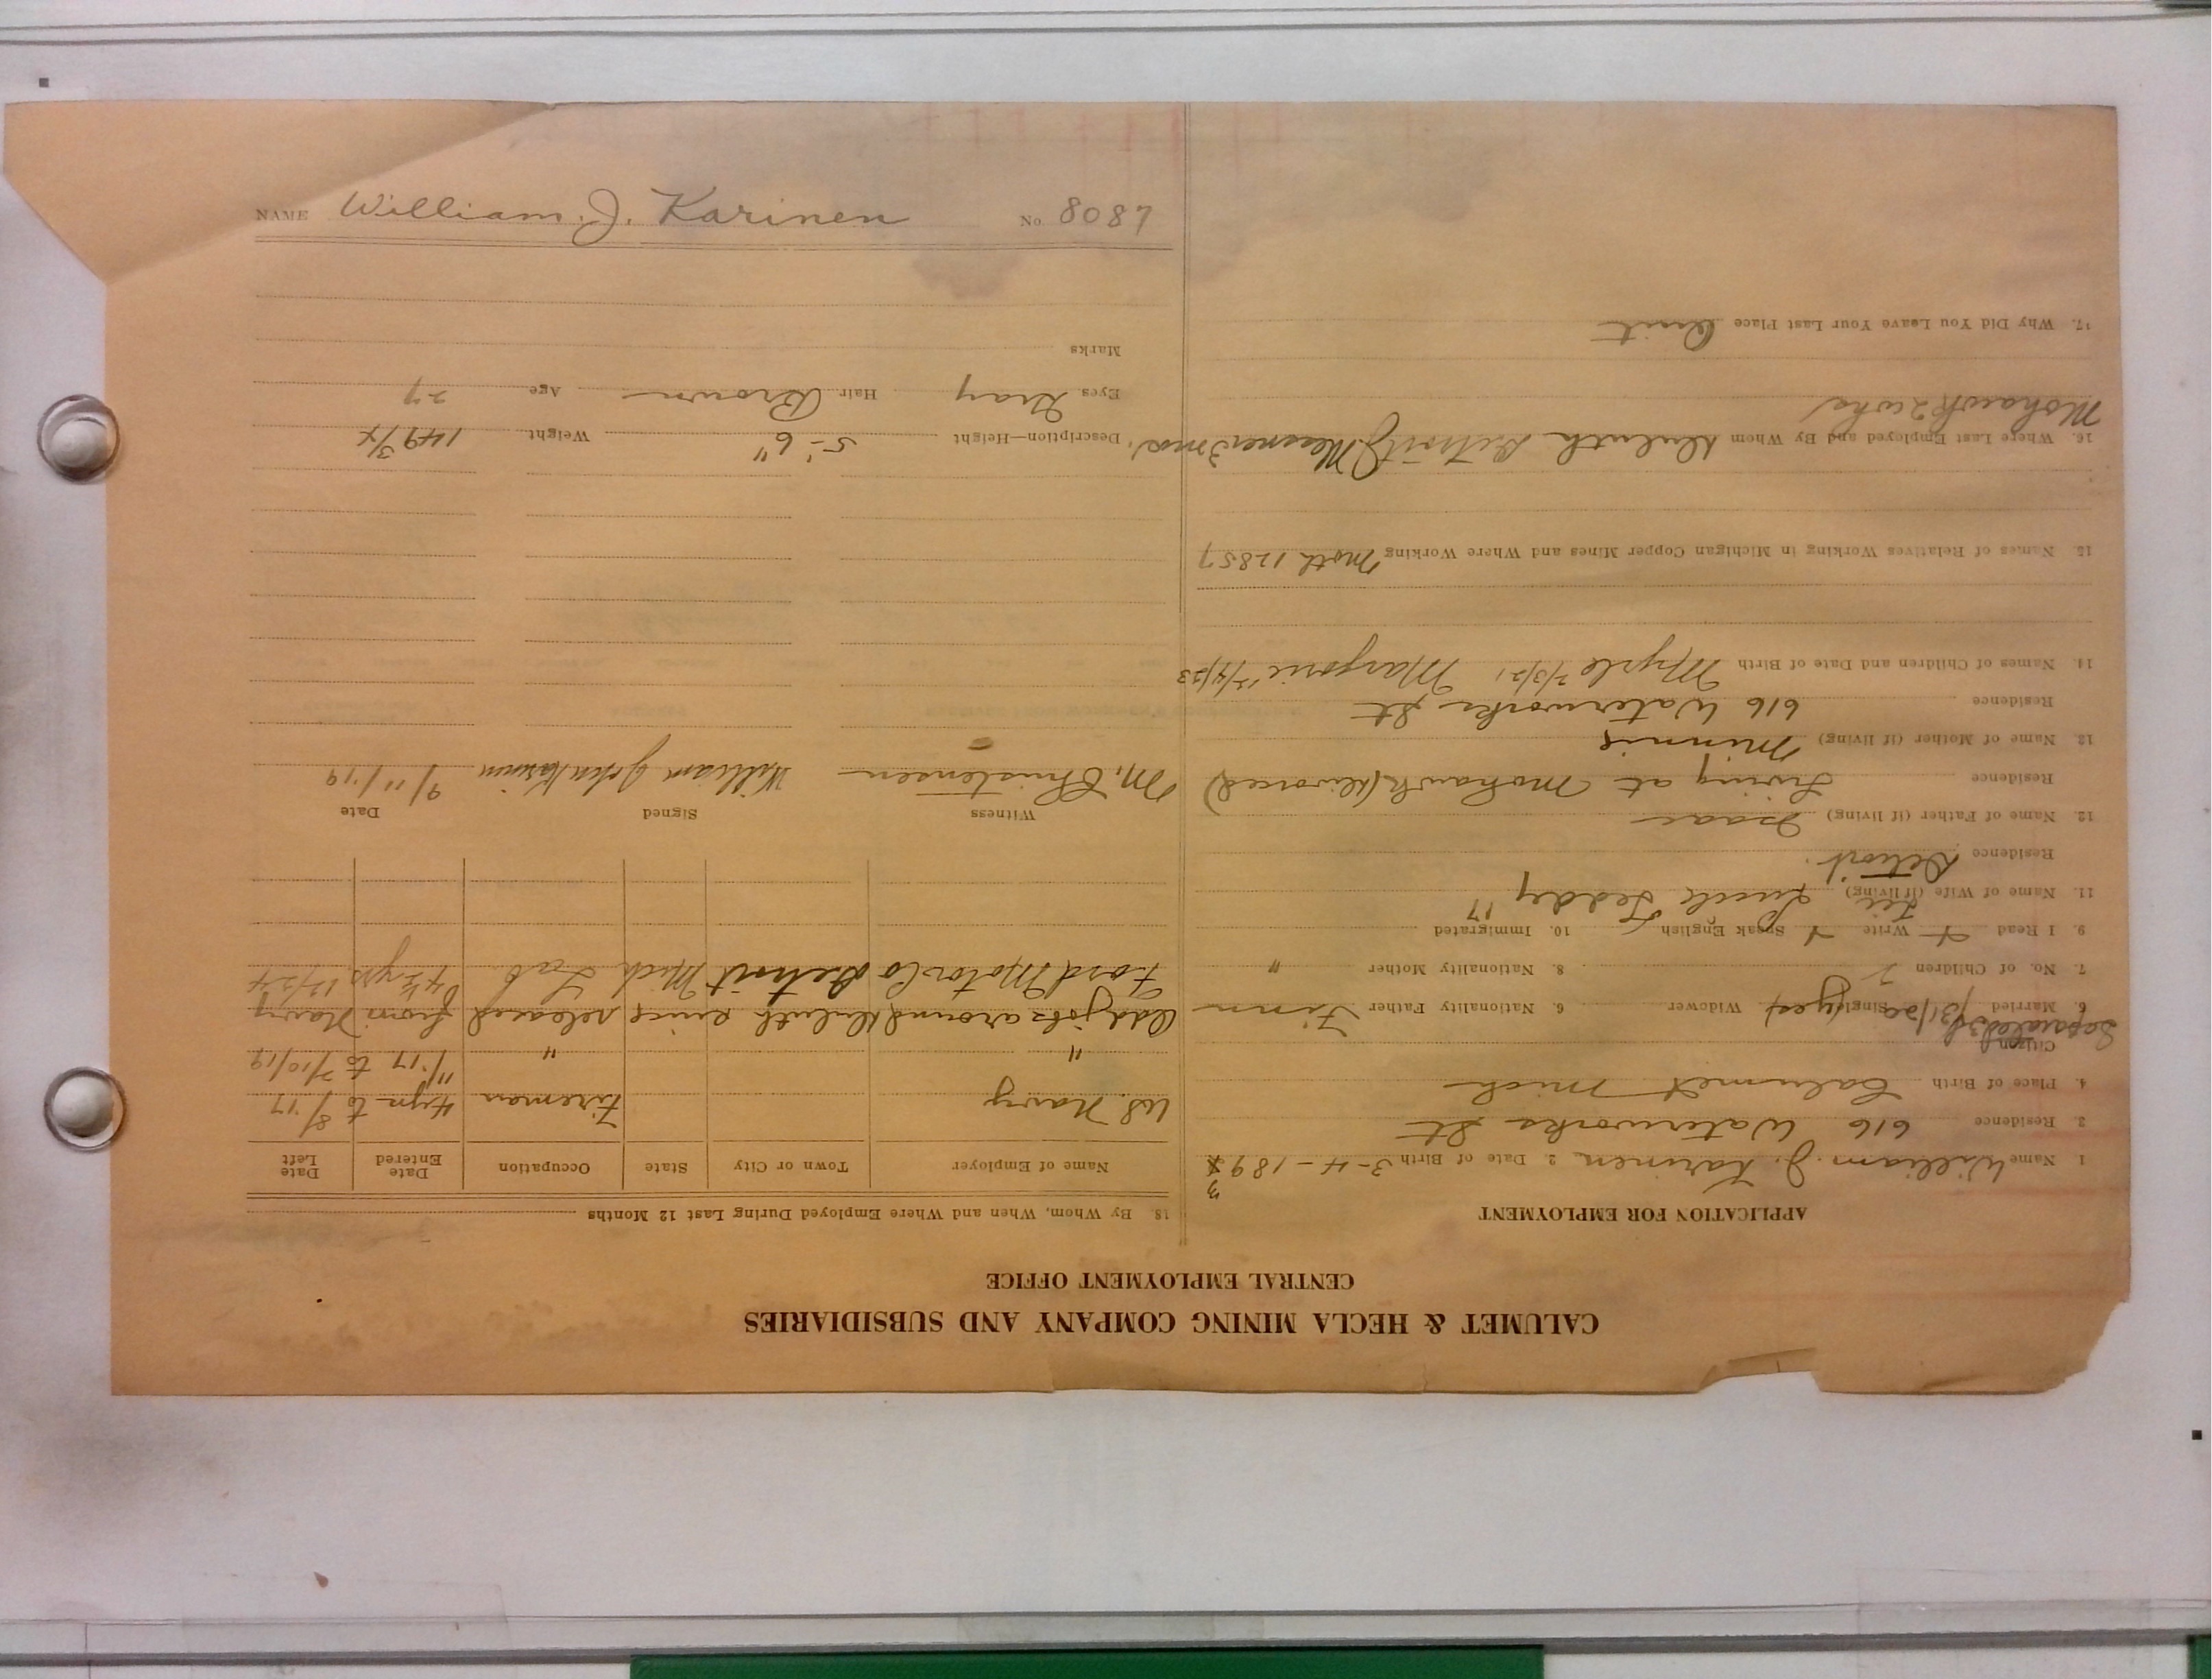 CALUMET & HECLA MINING COMPANY AND SUBSIDIARIES
CENTRAL EMPLOYMENT OFFICE
APPLICATION FOR EMPLOYMENT
1 Name William J. Karinen 2. Date of Birth 3-4-189 3
3. Residence 616 Waterworks St
4. Place of Birth Calumet Mich
Citizen
Separated
6. Married /31/20 Single (yes) Widower 6. Nationality Father Finn
7. No. of Children 2 8. Nationality Mother "
9. I Read Write Speak English 10. Immigrated 17
11. Name of Wife (if living) Lucile Leddy
Residence Detroit.
12. Name of Father (if living) Isaac
Residence Living at Mohawk (Divorced)
13. Name of Mother (if living) Minnie
Residence 616 Waterworks St
14. Names of Children and Date of Birth Myrle 2/3/21 Marjorie 12/4/23
15. Names of Relatives Working in Michigan Copper Mines and Where Working Moth 12857
16. Where Last Employed and By Whom Duluth Detroit J. Messner 3 mos,
Mohawk 2 wks
17. Why Did You Leave Your Last Place Quit
18. By Whom, When and Where Employed During Last 12 Months
Name of Employer Town or City State Occupation Date Entered Date Left
US Navy Fireman 4 yrs to 8/17
" " 11/17 to 7/10/19
Odd jobs around Duluth since released from Navy
Ford Motor Co Detroit Mich Lab 4½ yrs 12/24
Witness Signed Date
M. Christensen William John Karinen 9/11/19
Description—Height 5'-6" Weight 149 3/4
Eyes Gray Hair Brown Age 27
Marks
NAME William J. Karinen No 8087